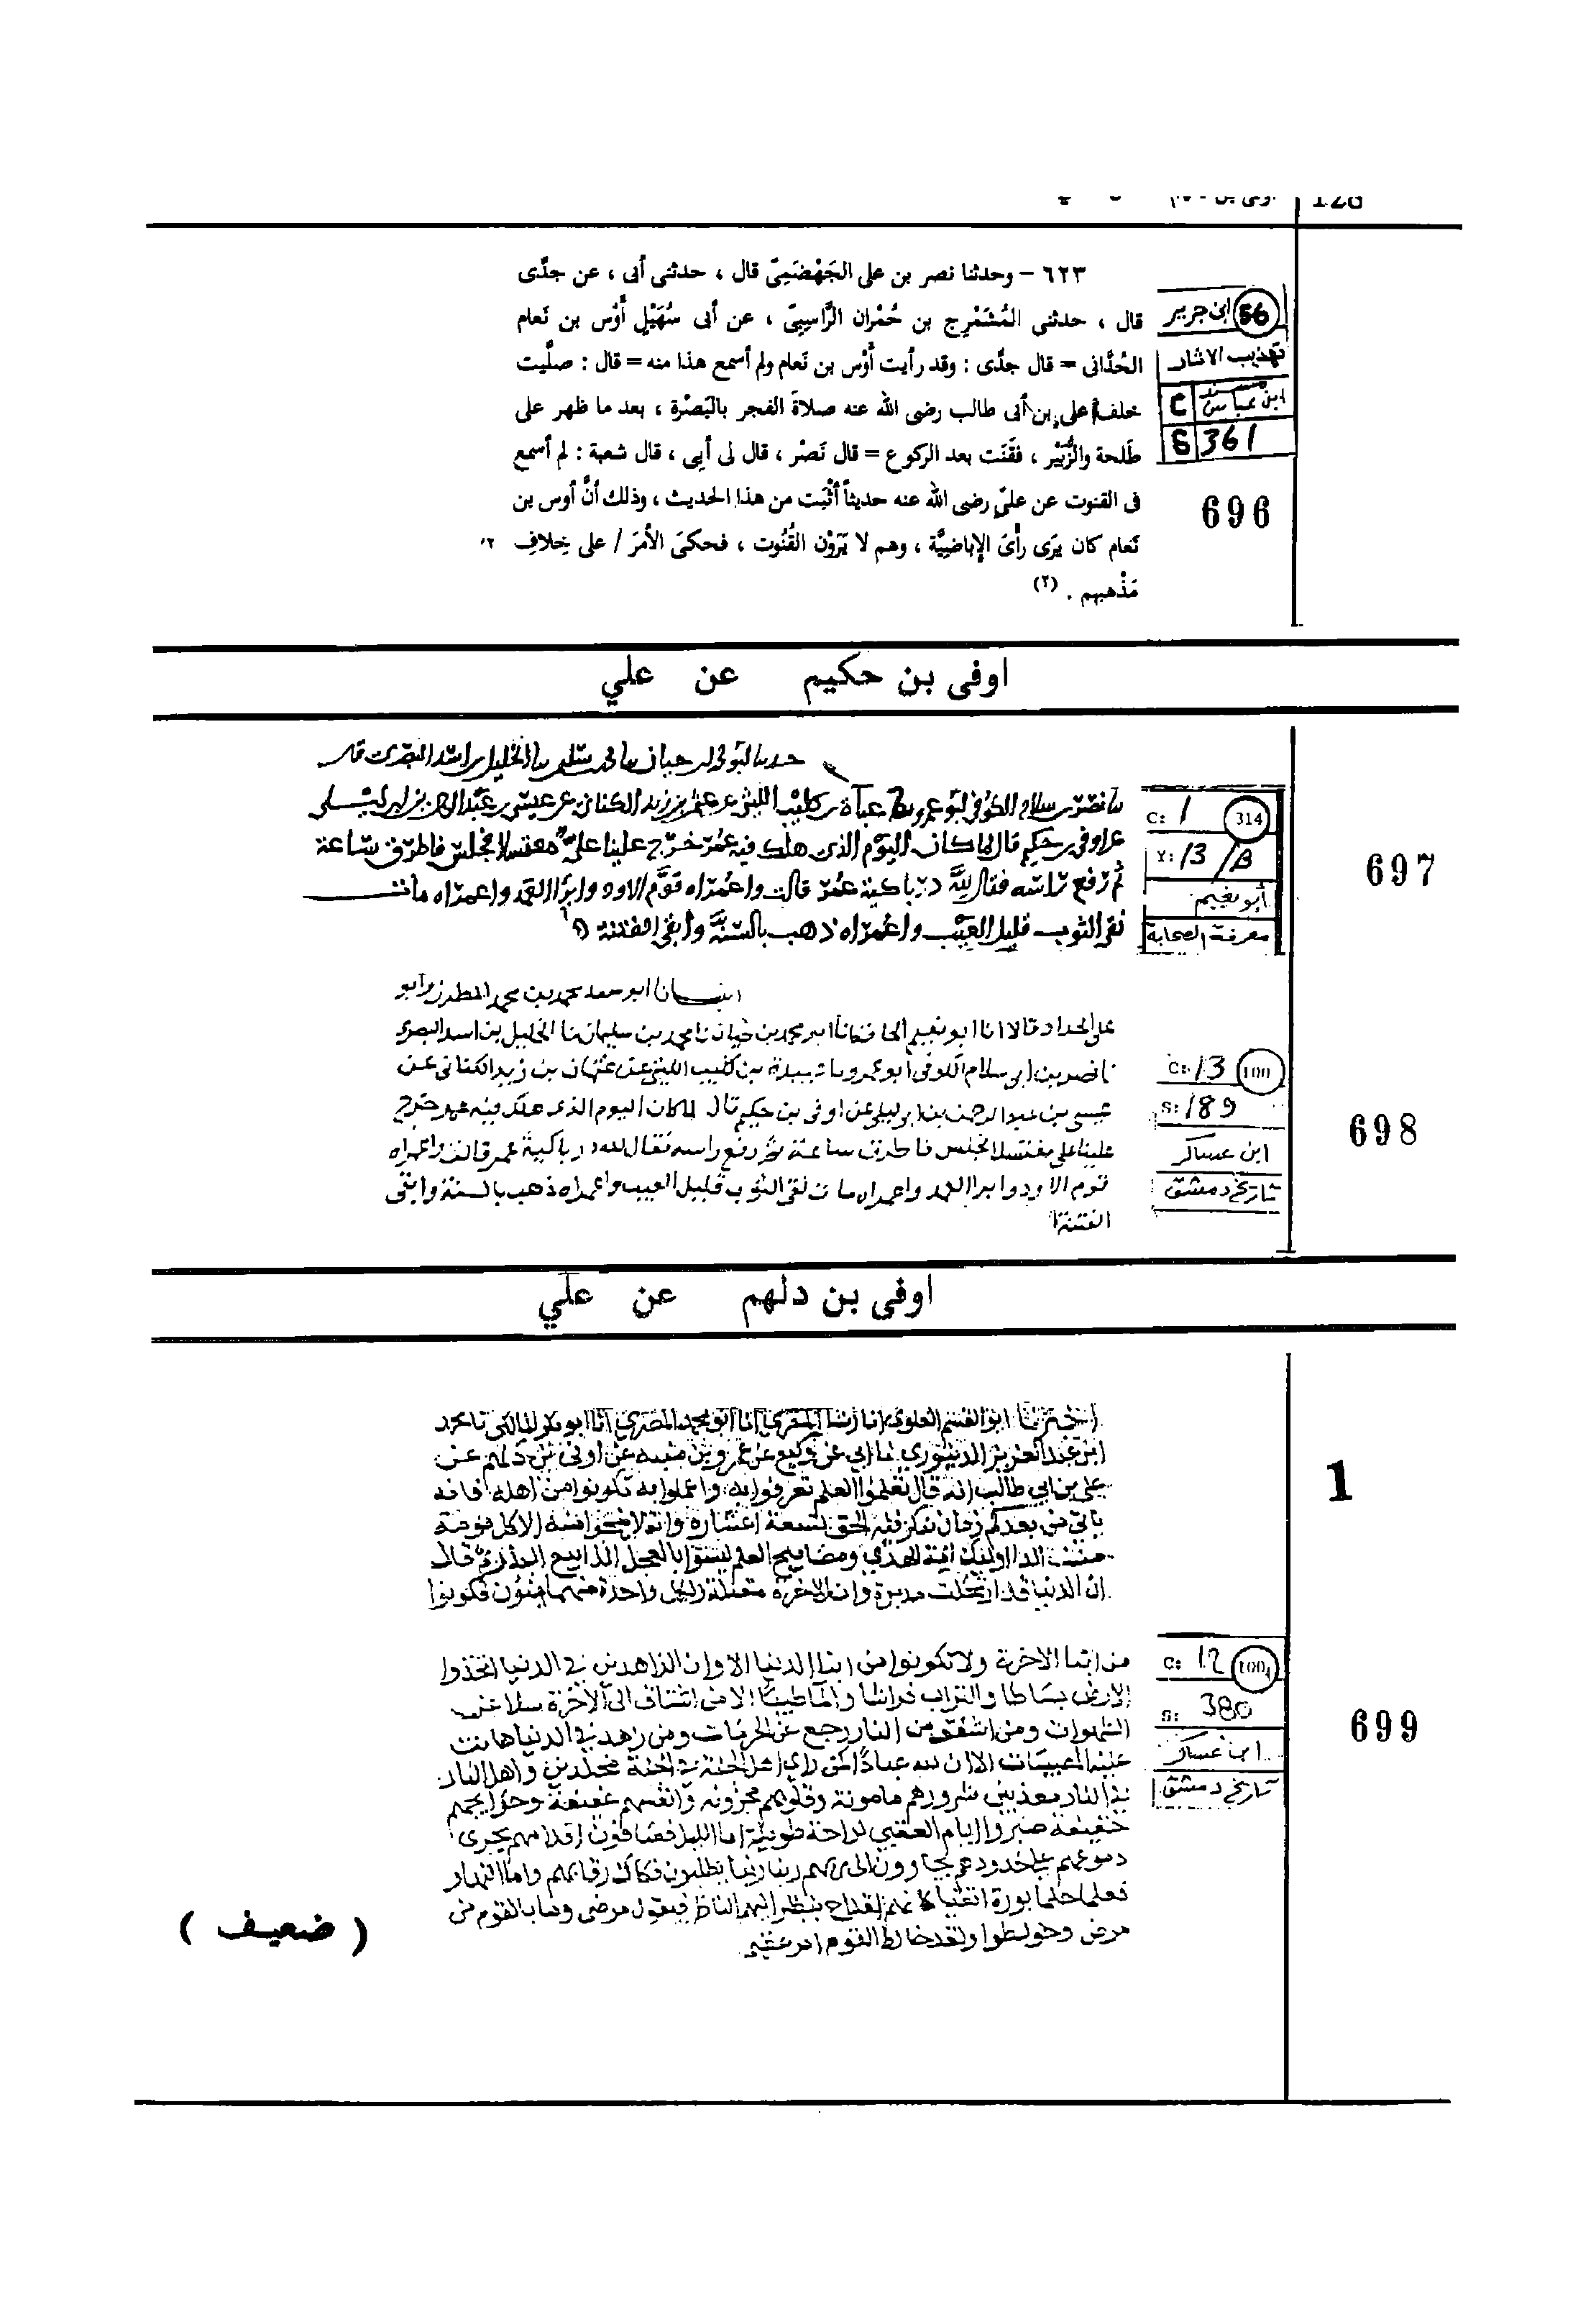 128
٦٢٣ – وحدثنا نصر بن على الجَهْضَمِىّ قال ، حدثنى أبى ، عن جدِّى
قال ، حدثنى المُشَمْرِج بن حُمْران الرَّاسِبِىّ ، عن أبى سُهَيْلٍ أَوْس بن نَعام
الحُدَّانى = قال جدِّى : وقد رأيت أَوْس بن نَعام ولم أسمع هذا منه = قال : صلَّيت
خلف على بن أبى طالب رضى الله عنه صلاةَ الفجر بالبَصْرة ، بعد ما ظهر على
طَلحة والزُّبَيْر ، فقَنَت بعد الركوع = قال نَصْر ، قال لى أبِى ، قال شعبة : لم أسمع
فى القنوت عن علىّ رضى الله عنه حديثاً أثْبَت من هذا الحديث ، وذلك أنَّ أوس بن
نَعام كان يَرَى رأىَ الإباضِيَّة ، وهم لا يَرَوْن القُنُوت ، فحكىَ الأمرَ / على خِلافِ
مَذْهبهم . (٢)
56 ابن جرير
تهذيب الاثار
مسند ابن عباس C
S 361
696
اوفى بن حكيم عن علي
البصرى
الكنانى عيسى بن
اوفى بن حكيم قال لما كان اليوم الذى هلك فيه عمر خرج علينا على مغتسلا فجلس فاطرق ساعة
ثم رفع راسه فقال لله در باكية عمر قالت واعمراه قوم الاود وابرا العمد واعمراه مات
نقى الثوب قليل العيب واعمراه ذهب بالسنة وأبقى الفتنة
C: 1 314
Y: 13/B
أبو نعيم
معرفة الصحابة
697
ابو سعد محمد بن محمد المطرز وابو
على الحداد قالا انا ابو نعيم الحافظ محمد بن سليمان نا الخليل بن اسد البصرى
نا نصر بن ابى سلام الكوفى ابو عمرو بن كليب الليثى عن عثمان بن زيد الكنانى عن
عيسى بن عبد الرحمن بن ابى ليلى عن اوفى بن حكيم قال لما كان اليوم الذى هلك فيه عمر خرج
علينا على مغتسلا فجلس فاطرق ساعة ثم رفع راسه فقال لله در باكية عمر قالت واعمراه
قوم الاود وابرا العمد واعمراه مات نقى الثوب قليل العيب واعمراه ذهب بالسنة وابقى
الفتنة
C: 13 100
S: 189
ابن عساكر
تاريخ دمشق
698
اوفى بن دلهم عن علي
اخبرنا ابو القسم العلوى انا رشا المقرى انا ابو محمد المصرى انا ابو بكر المالكى نا محمد
ابن عبد العزيز الدينورى نا ابي عن وكيع عن عمرو بن منبه عن اوفى بن دلهم عن
على بن ابي طالب انه قال تعلموا العلم تعرفوا به واعملوا به تكونوا من اهله فانه
ياتي من بعدكم زمان ينكر فيه الحق تسعة اعشاره وانه لا ينجوا منه الا كل نومة
اولئك ايمة الهدى ومصابيح العلم ليسوا بالعجل المذاييع البذر ثم قال
ان الدنيا قد ارتحلت مدبرة وان الاخرة مقبلة ولكل واحدة منهما بنون فكونوا
من ابنا الاخرة ولا تكونوا من ابنا الدنيا الا وان الزاهدين في الدنيا اتخذوا
الارض بساطا والتراب فراشا والما طيبا الا من اشتاق الى الاخرة سلا عن
الشهوات ومن اشفق من النار رجع عن الحرمات ومن زهد في الدنيا هانت
عليه المصيبات الا ان لله عبادا كمن راى اهل الجنة في الجنة مخلدين واهل النار
في النار معذبين شرورهم مامونة وقلوبهم محزونة وانفسهم عفيفة وحوايجهم
خفيفة صبروا ايام العقبى لراحة طويلة اما الليل فصافون اقدامهم يجرى
دموعهم على خدودهم يجارون الى ربهم ربنا ربنا يطلبون فكاك رقابهم واما النهار
فعلما حلما بررة اتقيا كانهم القداح ينظر اليهم الناظر فيقول مرضى وما بالقوم من
مرض وخولطوا ولقد خالط القوم امر عظيم
C: 12 100
S: 380
ابن عساكر
تاريخ دمشق
1
699
( ضعيف )